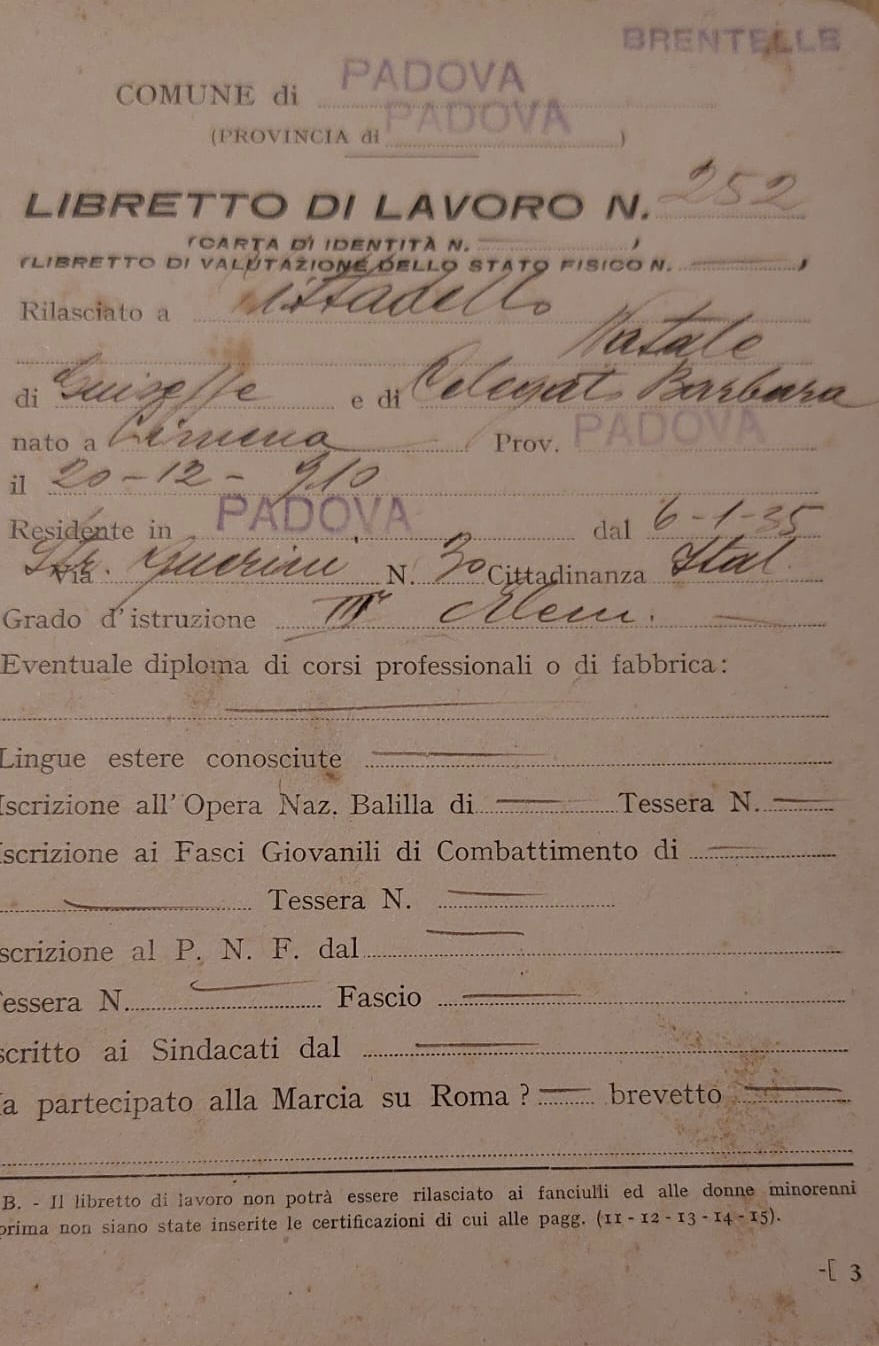 BRENTELLE
COMUNE di PADOVA
(PROVINCIA di PADOVA)
LIBRETTO DI LAVORO N. 252
(CARTA DI IDENTITÀ N. )
(LIBRETTO DI VALUTAZIONE DELLO STATO FISICO N. )
Rilasciato a
Natale
di Guiseppe e di Barbara
nato a Prov. PADOVA
il 20-12-910
Residente in PADOVA dal 6-1-35
Via Str. Guerini N. 30 Cittadinanza Ital.
Grado d'istruzione Elem.
Eventuale diploma di corsi professionali o di fabbrica:
Lingue estere conosciute
Iscrizione all'Opera Naz. Balilla di Tessera N.
Iscrizione ai Fasci Giovanili di Combattimento di
Tessera N.
scrizione al P. N. F. dal
essera N. Fascio
scritto ai Sindacati dal
a partecipato alla Marcia su Roma ? brevetto
B. - Il libretto di lavoro non potrà essere rilasciato ai fanciulli ed alle donne minorenni
prima non siano state inserite le certificazioni di cui alle pagg. (11 - 12 - 13 - 14 - 15).
-[ 3